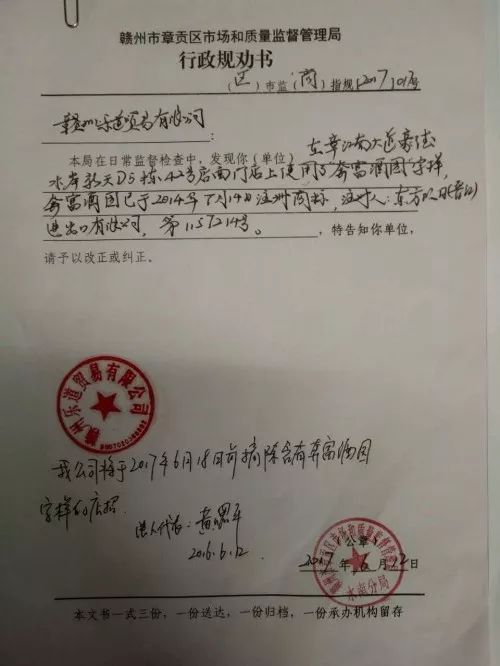 赣州市章贡区市场和质量监督管理局
行政规劝书
(区)市监(商)指规[2017]01号
赣州乐道贸易有限公司:
本局在日常监督检查中,发现你(单位)在章江南大道豪德
水岸新天D5栋42号店面门店上使用了奔富酒园字样,
奔富酒园已于2014年7月14日注册商标,注册人:东方
进出口有限公司,第11571214号。,特告知你单位,
请予以改正或纠正。
赣州乐道贸易有限公司
我公司将于2017年6月18日前拆除含有奔富酒园
字样的店招.
法人代表:黄
2016.6.12
公章
2017年6月12日
赣州市章贡区市场和质量监督管理局
水南分局
本文书一式三份,一份送达,一份归档,一份承办机构留存